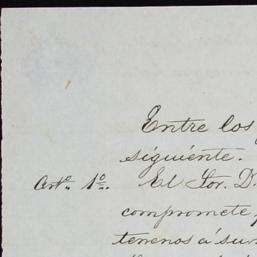 Entre los
siguiente.
Arto. 1o. El Sor. D.
compromete,
terrenos á su